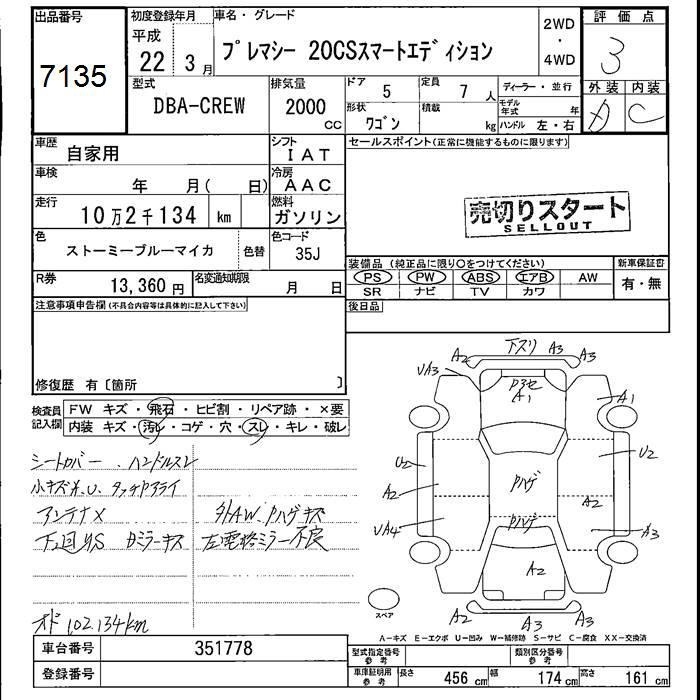 出品番号
7135
初度登録年月
平成
22 3月
車名・グレード
プレマシー 20CSスマートエディション
2WD
・
4WD
評価点
3
外装 内装
C
型式
DBA-CREW
排気量
2000
cc
ドア 5
定員 7人
形状 ワゴン
積載 kg
ディーラー・並行
モデル年式 年
ハンドル 左・右
車歴
自家用
シフト
IAT
車検
年 月( 日)
冷房
AAC
走行
10万2千134 km
燃料
ガソリン
色
ストーミーブルーマイカ
色替
色コード
35J
R券
13,360円
名変通知期限
月 日
セールスポイント(正常に機能するものに限ります)
売切りスタート
SELLOUT
装備品(純正品に限り○をつけてください)
新車保証書
PS PW ABS エアB AW
有・無
SR ナビ TV カワ
後日品
注意事項申告欄(不具合内容等は具体的に記入して下さい)
修復歴 有〔箇所 〕
検査員
記入欄
FW キズ・飛石・ヒビ割・リペア跡・×要
内装 キズ・汚レ・コゲ・穴・スレ・キレ・破レ
シートカバー . ハンドルスレ
小キズ
アンテナX
外AW.Pハゲキズ
下回りS Dミラーキズ
左電格ミラー不良
オド 102.134km
下スリ
A2 A3 A3
UA3
A1
A1
U2 U2
Pハゲ
A2 A2
Pハゲ
UA4 A3
A2
A2 A3 A3
スペア
A－キズ E－エクボ U－凹み W－補修跡 S－サビ C－腐食 XX－交換済
車台番号
351778
登録番号
型式指定番号
参考
類別区分番号
参考
車庫証明用
参考
長さ 456cm
幅 174cm
高さ 161cm